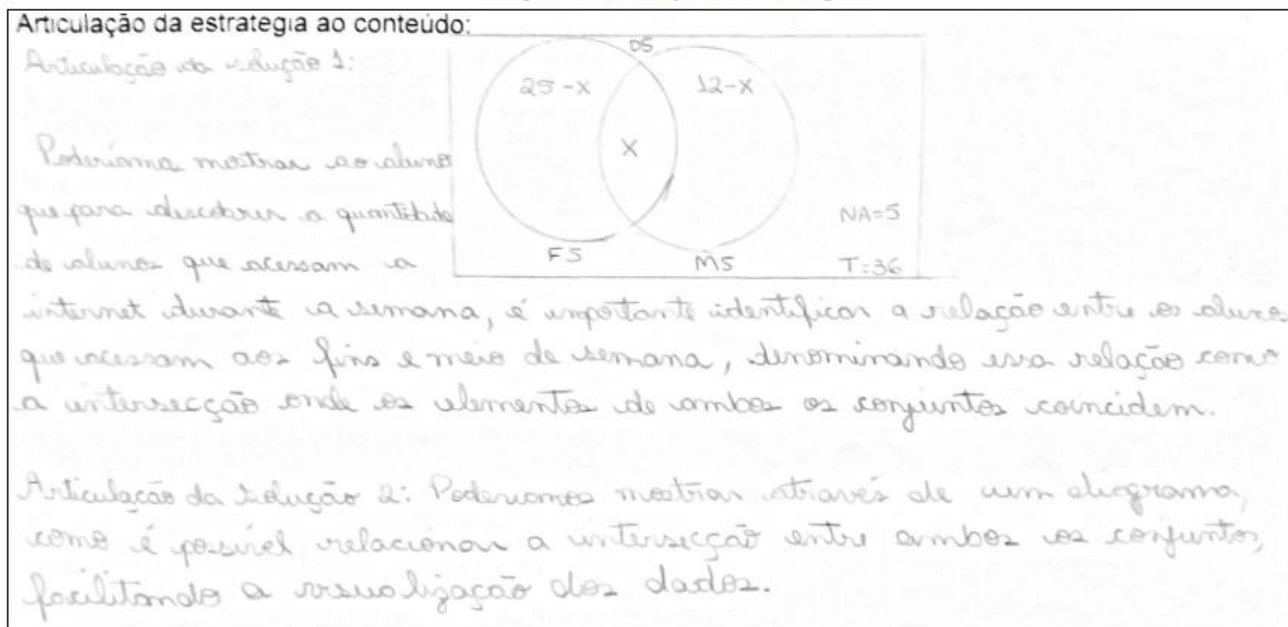 Articulação da estrategia ao conteúdo:
Articulação da solução 1:
DS
25-X
12-X
X
NA=5
FS
MS
T=36
Poderiama mostrar ao aluno
que para descobrir a quantidade
de alunos que acessam a
internet durante a semana, é importante identificar a relação entre os alunos
que acessam aos fins e meio de semana, denominando essa relação como
a intersecção onde os elementos de ambos os conjuntos coincidem.
Articulação da Solução 2: Poderiamos mostrar através de um diagrama,
como é possível relacionar a intersecção entre ambos os conjuntos,
facilitando a visualização dos dados.